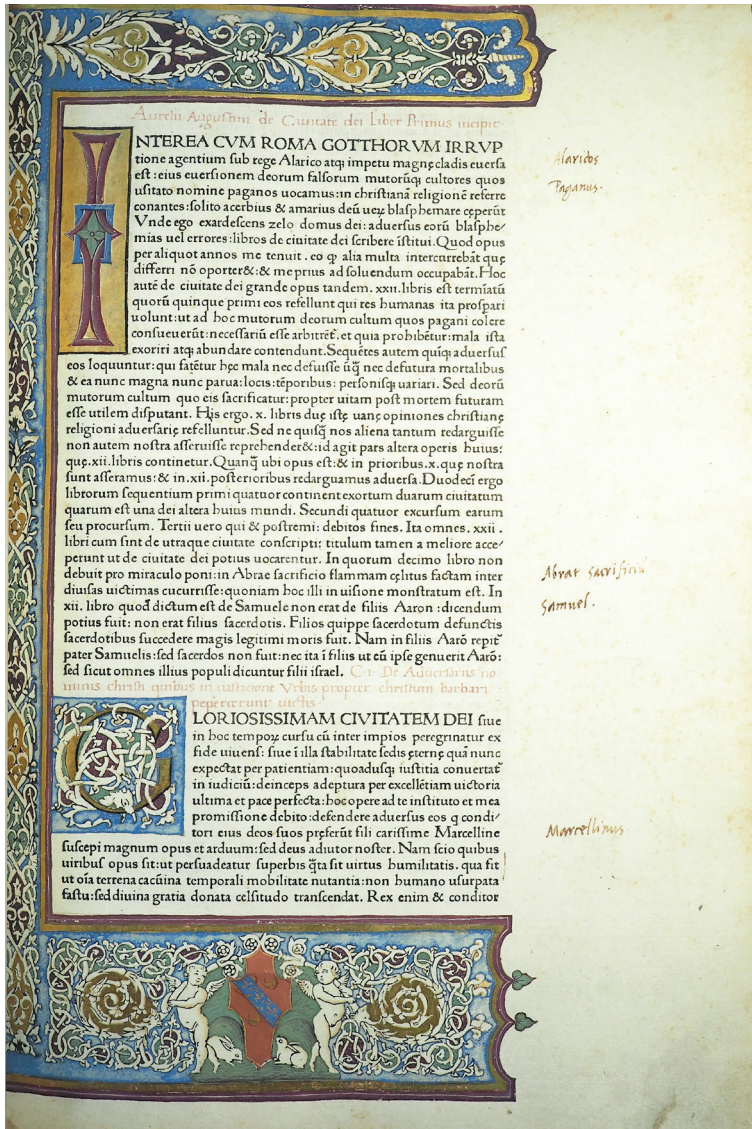 Aurelii Augustini de Civitate dei Liber Primus incipit
INTEREA CVM ROMA GOTTHORVM IRRVP
tione agentium sub rege Alarico atqȝ impetu magnę cladis euersa
est: eius euersionem deorum falsorum mutorūqȝ cultores quos
usitato nomine paganos uocamus: in christianā religionē referre
conantes: solito acerbius & amarius deū ueꝝ blasphemare cęperūt
Vnde ego exardescens zelo domus dei: aduersus eorū blasphe/
mias uel errores: libros de ciuitate dei scribere īstitui. Quod opus
per aliquot annos me tenuit. eo ꝙ alia multa intercurrebāt quę
differri nō oporter&: & me prius ad soluendum occupabāt. Hoc
autē de ciuitate dei grande opus tandem .xxii. libris est termīatū
quorū quinque primi eos refellunt qui res humanas ita prospari
uolunt: ut ad hoc mutorum deorum cultum quos pagani colere
consueuerūt: necessariū esse arbitrēt. et quia prohibētur: mala ista
exoriri atqȝ abundare contendunt. Sequētes autem quīqȝ aduersus
eos loquuntur: qui fatētur hęc mala nec defuisse ūq̄ nec defutura mortalibus
& ea nunc magna nunc parua: locis: tēporibus: personisqȝ uariari. Sed deorū
mutorum cultum quo eis sacrificatur: propter uitam post mortem futuram
esse utilem disputant. His ergo .x. libris duę istę uanę opiniones christianę
religioni aduersarię refelluntur. Sed ne quisq̄ nos aliena tantum redarguisse
non autem nostra asseruisse reprehender&: id agit pars altera operis huius:
quę .xii. libris continetur. Quanq̄ ubi opus est: & in prioribus .x. quę nostra
sunt asseramus: & in .xii. posterioribus redarguamus aduersa. Duodecī ergo
librorum sequentium primi quatuor continent exortum duarum ciuitatum
quarum est una dei altera huius mundi. Secundi quatuor excursum earum
seu procursum. Tertii uero qui & postremi: debitos fines. Ita omnes .xxii.
libri cum sint de utraque ciuitate conscripti: titulum tamen a meliore acce/
perunt ut de ciuitate dei potius uocarentur. In quorum decimo libro non
debuit pro miraculo poni: in Abrae sacrificio flammam cęlitus factam inter
diuisas uictimas cucurrisse: quoniam hoc illi in uisione monstratum est. In
xii. libro quod dictum est de Samuele non erat de filiis Aaron: dicendum
potius fuit: non erat filius sacerdotis. Filios quippe sacerdotum defunctis
sacerdotibus succedere magis legitimi moris fuit. Nam in filiis Aarō repit᷑
pater Samuelis: sed sacerdos non fuit: nec ita ī filiis ut eū ipse genuerit Aarō:
sed sicut omnes illius populi dicuntur filii israel. C. I. De Aduersariis no
minis christi quibus in uastatione Vrbis propter christum barbari
pepercerunt uictis
GLORIOSISSIMAM CIVITATEM DEI siue
in hoc tempoꝝ cursu cū inter impios peregrinatur ex
fide uiuens: siue ī illa stabilitate sedis ęternę quā nunc
expectat per patientiam: quoadusqȝ iustitia conuertat᷑
in iudiciū: deinceps adeptura per excellētiam uictoria
ultima et pace perfecta: hoc opere ad te instituto et mea
promissione debito: defendere aduersus eos q condi/
tori eius deos suos pręferūt fili carissime Marcelline
suscepi magnum opus et arduum: sed deus adiutor noster. Nam scio quibus
uiribus opus sit: ut persuadeatur superbis q̄ta sit uirtus humilitatis. qua fit
ut oīa terrena cacūina temporali mobilitate nutantia: non humano usurpata
fastu: sed diuina gratia donata celsitudo transcendat. Rex enim & conditor
Alaricos
Paganus.
Abrae Sacrificiū
Samuel.
Marcellinus